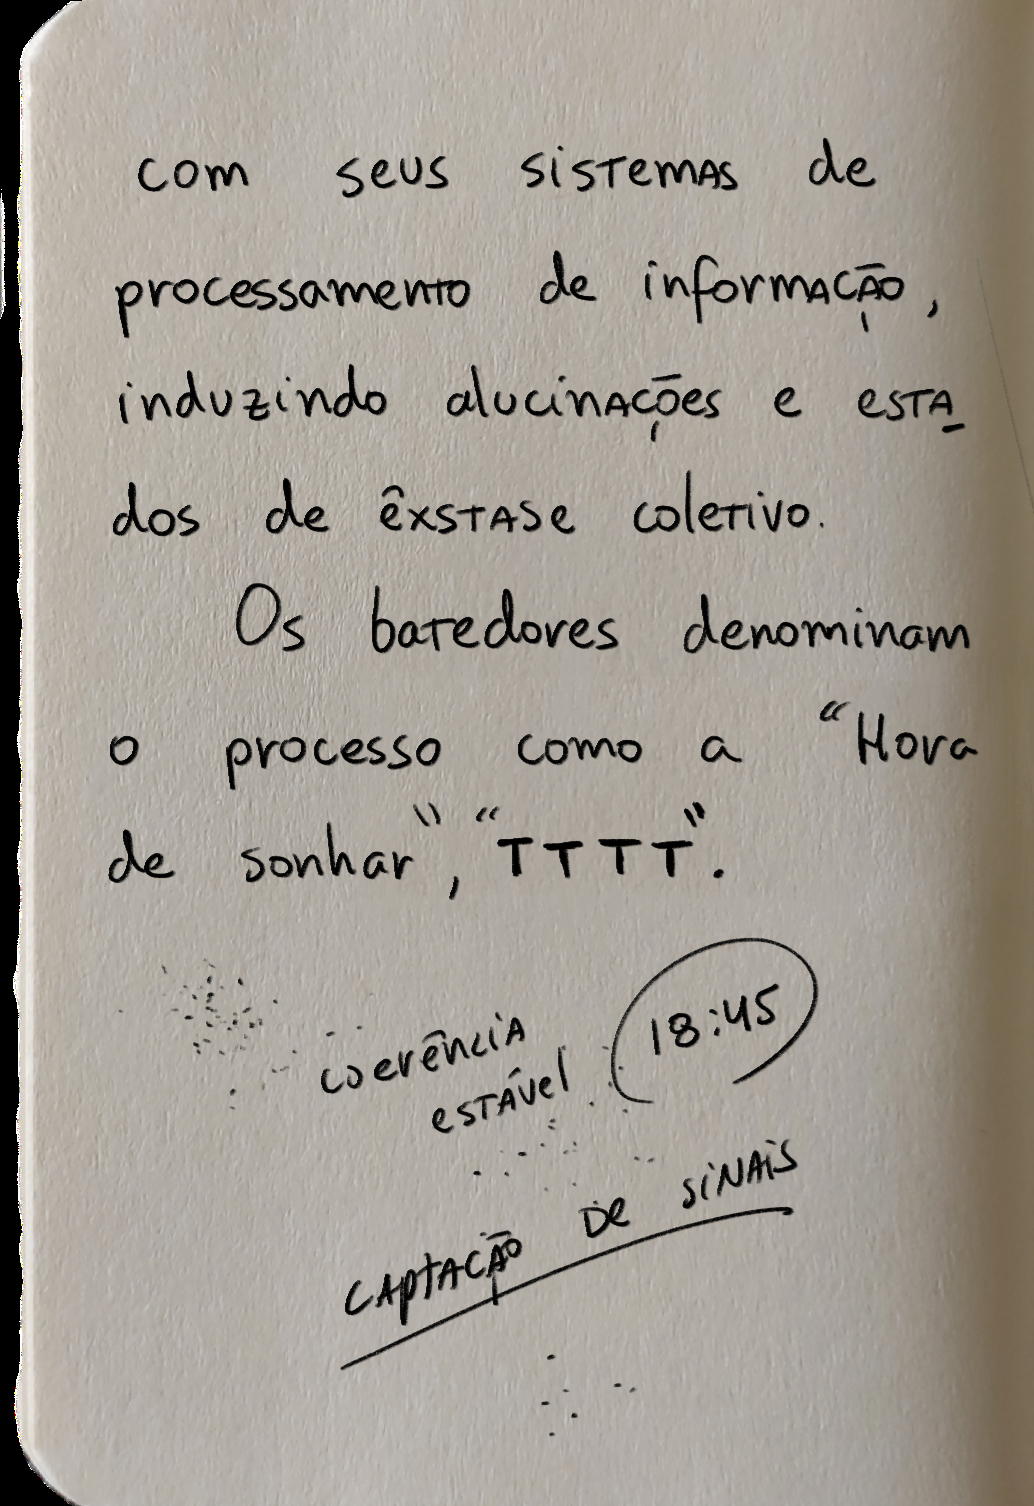 com seus sistemas de
processamento de informação,
induzindo alucinações e esta
dos de êxstase coletivo.
Os batedores denominam
o processo como a “Hora
de sonhar”, “TTTT”.
coerência
estável
18:45
CAPTAÇÃO DE SINAIS